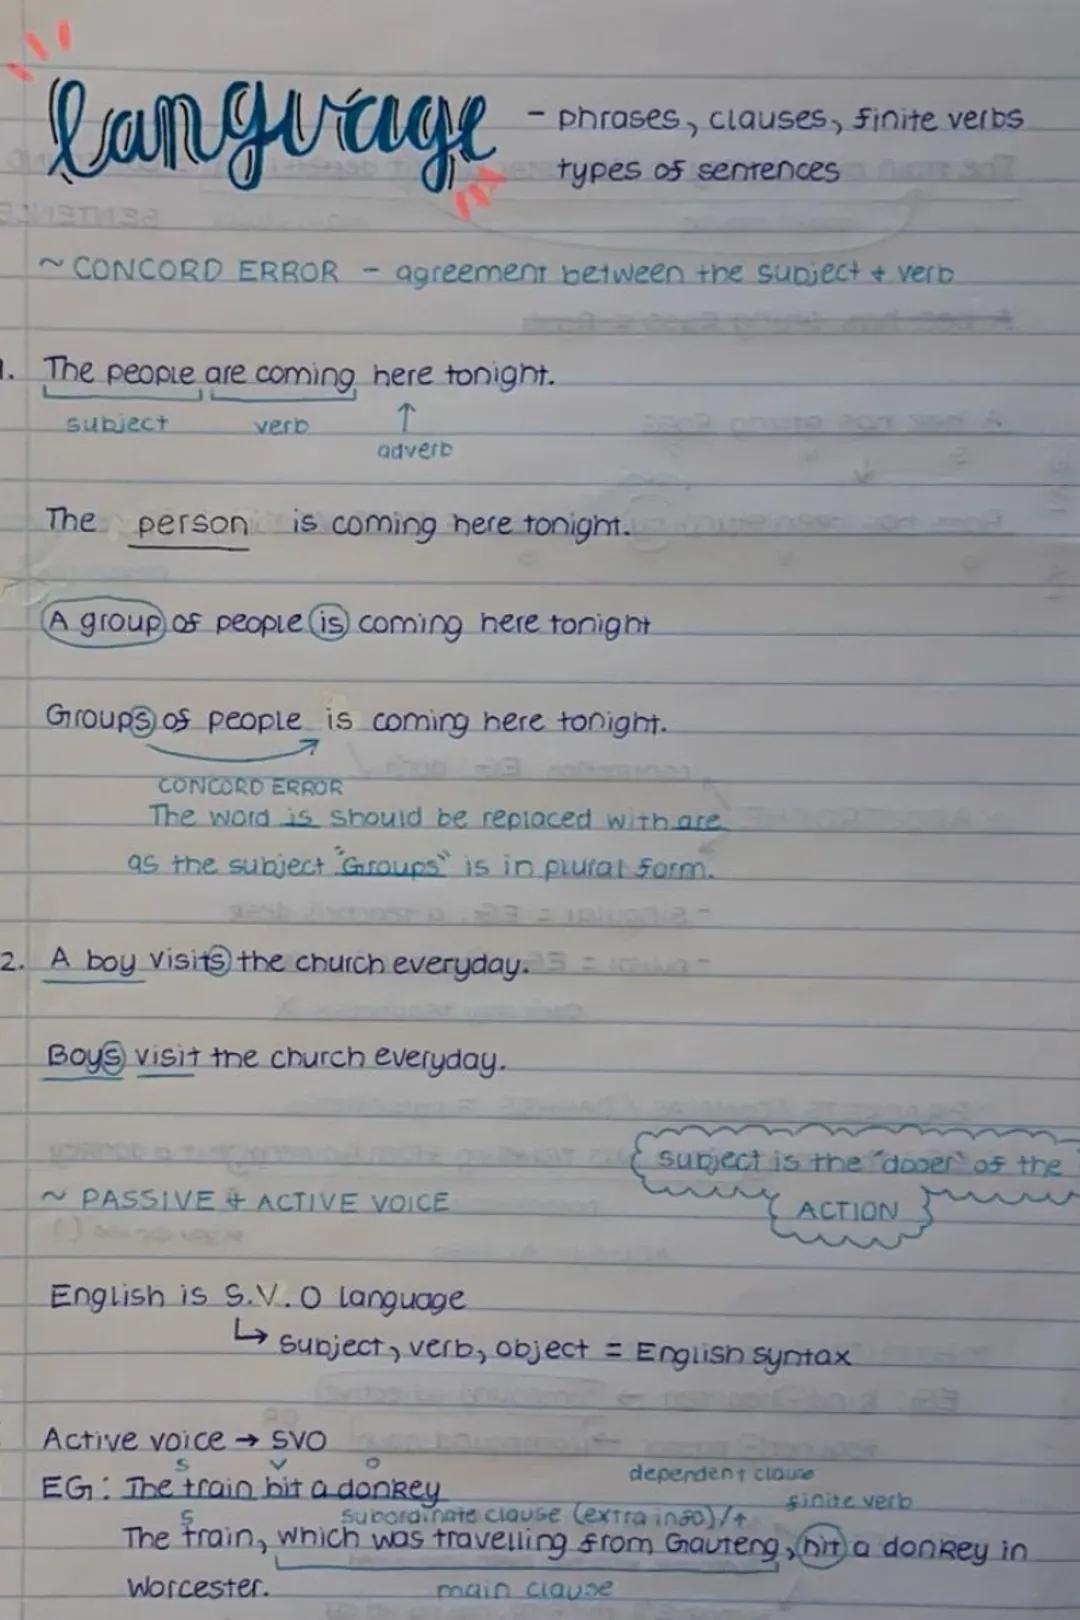 language - phrases, clauses, finite verbs
types of sentences
~ CONCORD ERROR - agreement between the subject + verb
1. The people are coming here tonight.
subject verb ↑
adverb
The person is coming here tonight.
A group of people is coming here tonight
Groups of people is coming here tonight.
CONCORD ERROR
The word is should be replaced with are
as the subject "Groups" is in plural form.
2. A boy visits the church everyday.
Boys visit the church everyday.
subject is the "dooer" of the
ACTION
~ PASSIVE + ACTIVE VOICE
English is S.V.O language
↳ subject, verb, object = English syntax
Active voice → SVO
S V O
EG: The train hit a donkey
dependent clause
subordinate clause (extra info)/↑ finite verb
S
The train, which was travelling from Gauteng, hit a donkey in
Worcester. main clause